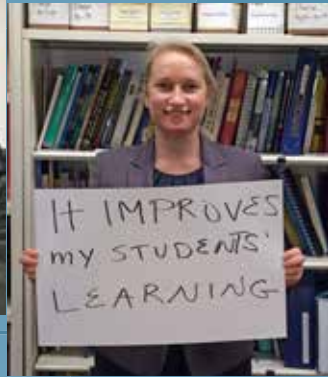 It IMPROVES
my STUDENTS'
LEARNING